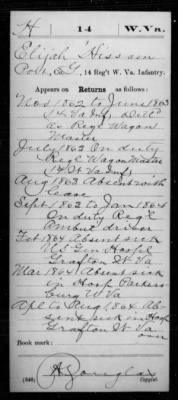 H | 14 | W. Va.
Elijah Hissam
Pvt., Co. G, 14 Reg't W. Va. Infantry.
Appears on Returns as follows:
Nov 1862 to June 1863
14 Va Inf, Det'd
as Regl Wagon
Master
July 1863 On duty
Regl Wagon Master
14 Vt Va Inf,
Aug 1863 Absent with
leave
Sept 1863 to Jan 1864
On duty Reg'l
Ambul driver
Feb 1864 Absent sick
U.S. Gen Hospl
Grafton Wt Va
Mar 1864 Absent sick
in Hosp Parkers-
burg W Va
Apl to Aug 1864 Ab-
sent sick in Hosp
Grafton Wt Va
Book mark:
(546)
Copyist.